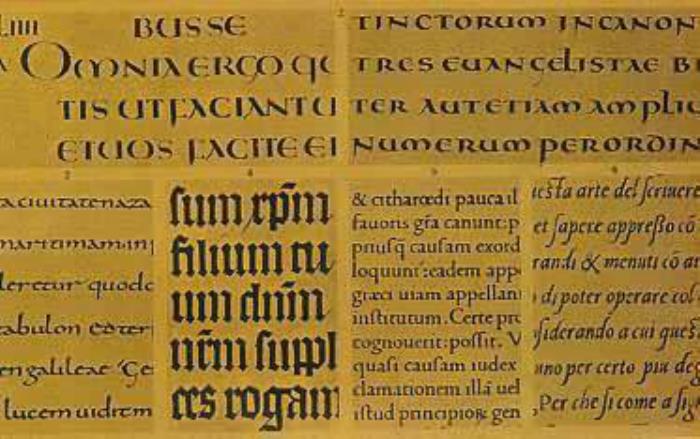 BUSSE
OMNIA ERGO QU
TIS UT FACIANT U
ET UOS FACITE EI
TINCTORUM IN CANON
TRES EUANGELISTAE
TER AUT ETIAM AMPLIU
NUMERUM PER ORDIN
aciuitatenaza
martimam·in
leretur quodc
tabulon eoter
en galileae Ge
lucem uidem
sum xp̄m
filium tu
um dn̄m
nr̄m suppl
ces rogam
& citharœdi pauca il
fauoris gr̄a canunt:p
priusq̄ causam exord
loquunt:eadem app
græci uiam appellant
institutum. Certe pro
cognouerit:possit. V
quasi causam iudex
clamationem illā uel
istud principioꝝ gen
icsta arte del scriuere
et sapere appresso cō
randi & menuti cō ar
di poter operare col
siderando a cui quest
uno per certo piu deg
Per che si come a sig